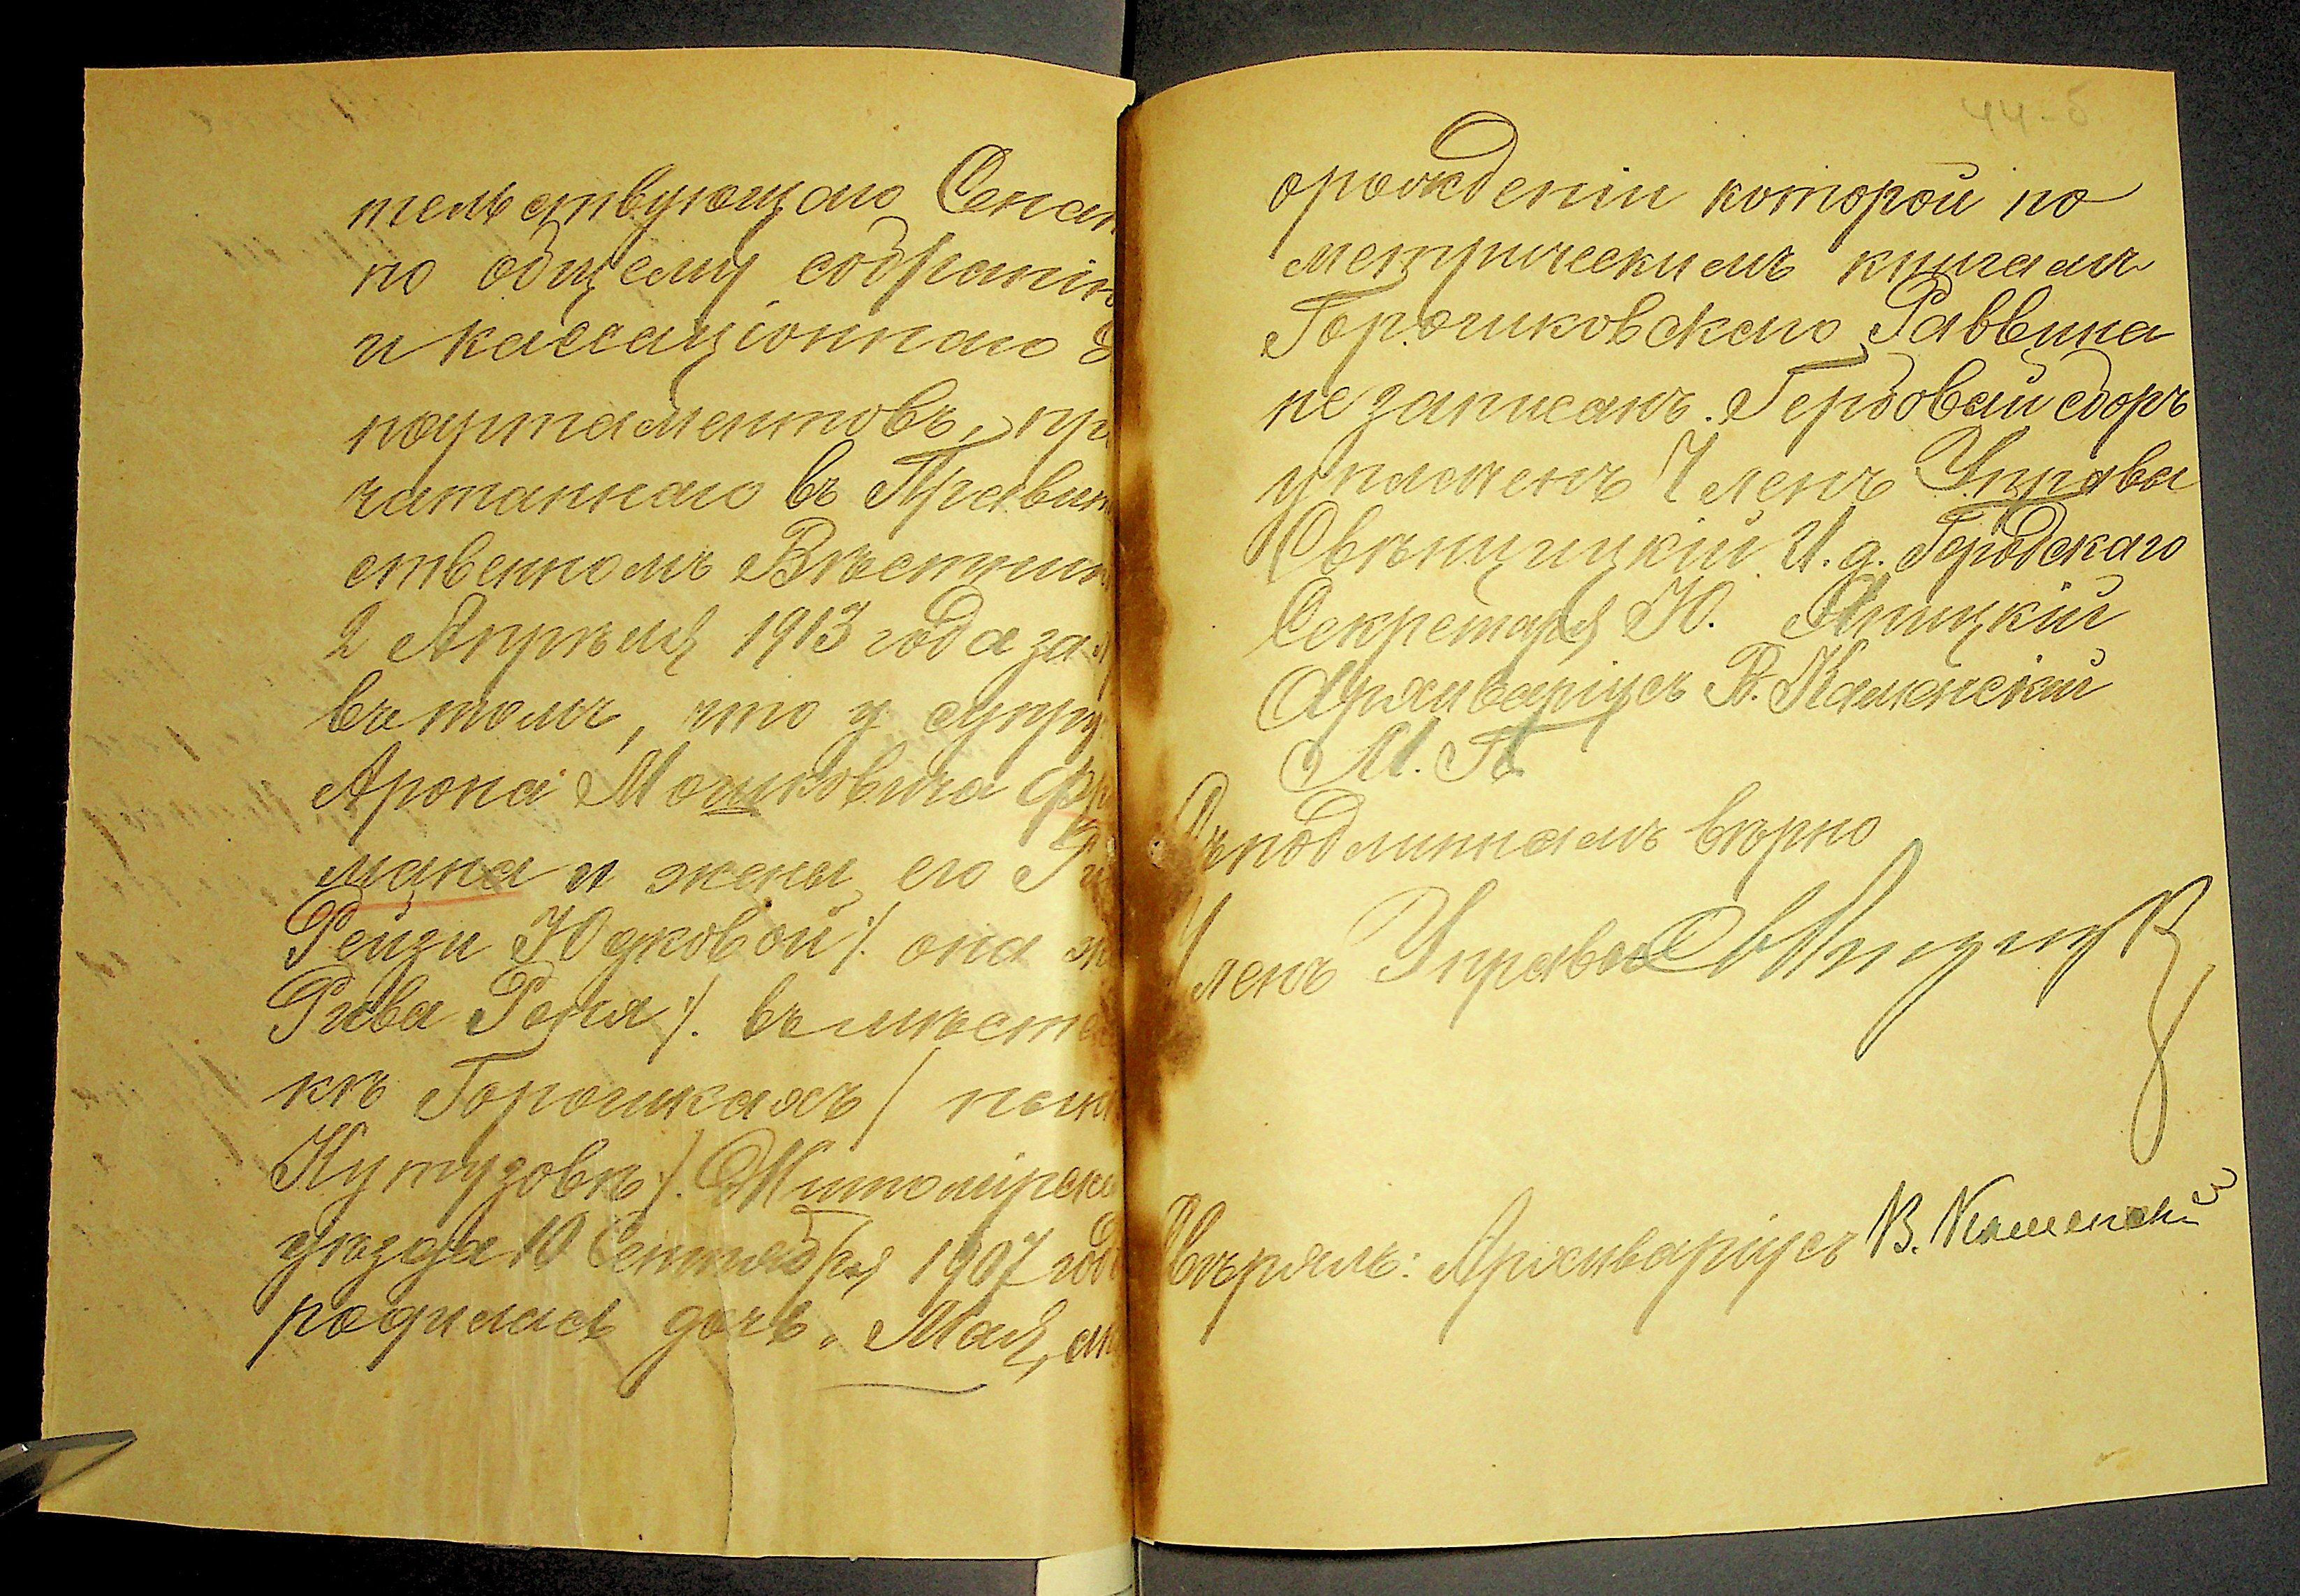 тельствующаго Сенат
по общему собранію
и кассаціоннаго д
партаментовъ, пр
чатаннаго въ Правит
ственномъ Вѣстник
2 Апрѣля 1913 года за
въ томъ, что у супру
Арона Мошковича Фр
мана и жены его Ри
Рейзи Юдковой /. она ж
Рива Рейзя /. въ мѣстеч
кѣ Горошкахъ / нын
Кутузовѣ /. Житомірска
уѣзда 10 Сентября 1907 год
родилась дочь. Мая, ак
44-б
орожденіи которой по
метрическимъ книгамъ
Горошковскаго Раввина
не записанъ. Гербовый сборъ
уплоченъ Членъ Управы
Свѣнцицкій И. д. Городскаго
Секретаря Ю. Яницкій
Архиваріусъ В. Каменскій
М. П.
Съ подлиннымъ вѣрно
Членъ Управы
Свѣрялъ: Архиваріусъ В. Каменскій